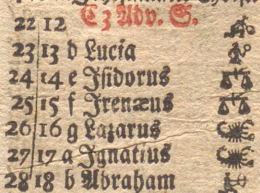 C 3 Adv. S.
22 12
23 13 d Lucia
24 14 e Isidorus
25 15 f Irenæus
26 16 g Lazarus
27 17 a Ignatius
28 18 b Abraham